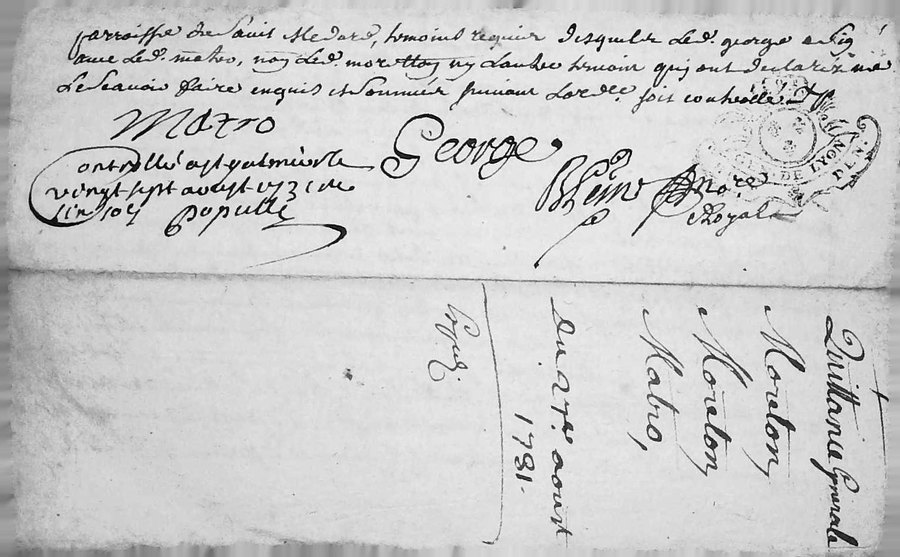 parroisse de Saint Medard, temoins requis desquels led. george a sig
avec led. matro, non led. moretton ny l'autre temoin qui ont declarez ne
le scavoir faire enquis et sommez suivant l'ordce. soit controllé
Matro
George
Controllé a st galmier le
vingt sept aoust 1731 re
six sols
populle
Nore.
Royal
DE LYON
Quittance Generale
Moreton,
Moreton,
Matro,
Du 27e. aoust
1731.